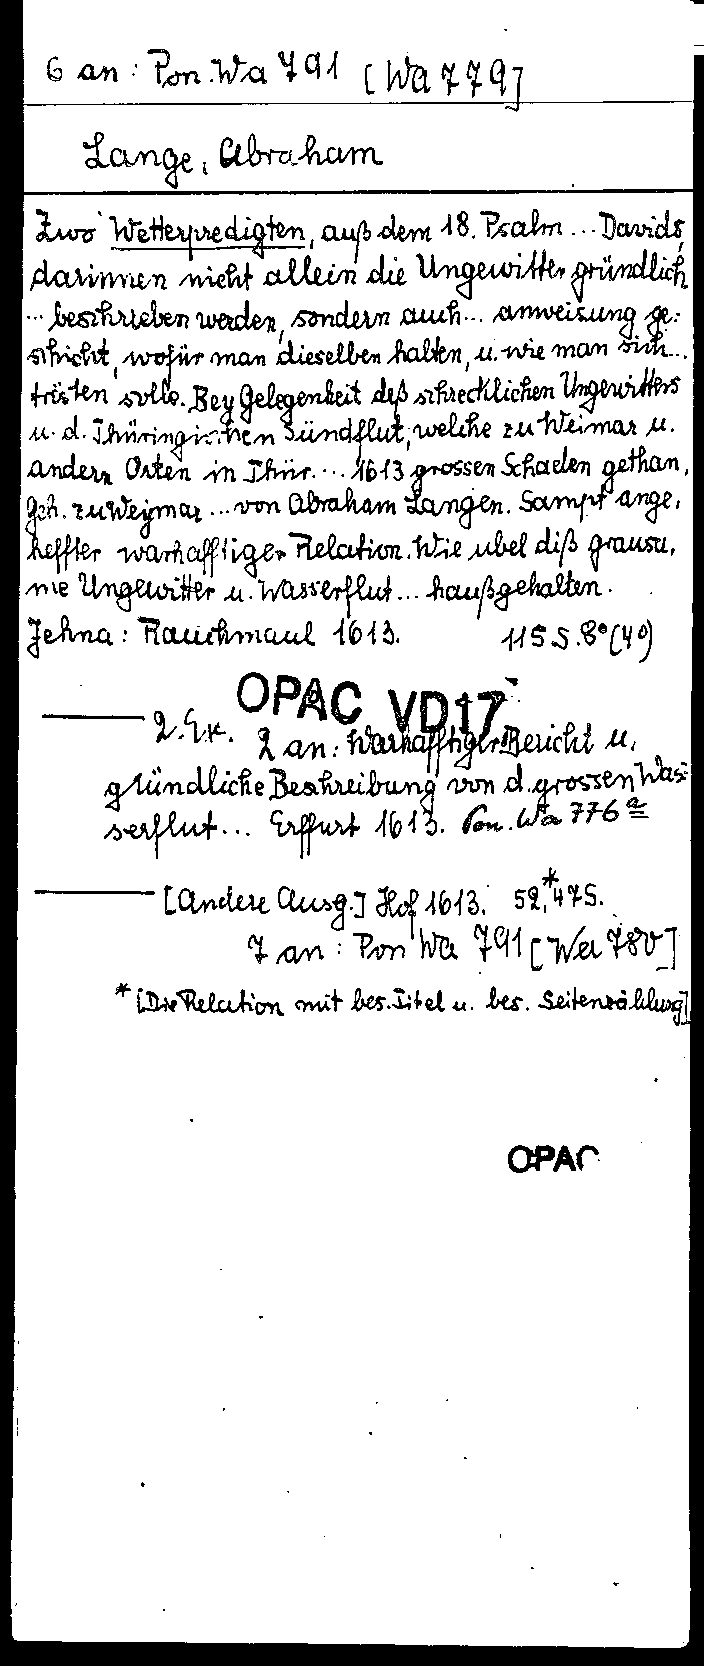 6 an: Pon. Wa 791 [Wa 779]
Lange, Abraham
Zwo Wetterpredigten, auß dem 18. Psalm ... Davids,
darinnen nicht allein die Ungewitter gründlich
... beschrieben werden, sondern auch ... anweisung ge-
schicht, wofür man dieselben halten, u. wie man sich ...
trösten solle. Bey Gelegenheit deß schrecklichen Ungewitters
u. d. Thüringischen Sündflut, welche zu Weimar u.
andern Orten in Thür. ... 1613 grossen Schaden gethan,
Geh. zu Weymar ... von Abraham Langen. Sampt ange-
heffter warhafftiger Relation. Wie ubel diß grausa-
me Ungewitter u. Wasserflut ... haußgehalten.
Jehna: Rauchmaul 1613. 115 S. 8° (4°)
OPAC VD17
2. Ex. 2 an: Warhafftiger Bericht u.
gründliche Beschreibung von d. grossen Was-
serflut ... Erffurt 1613. Pon. Wa 776 a
[Andere Ausg.] Hof 1613. 52,* 47 S.
7 an: Pon Wa 791 [Wa 780]
* [Die Relation mit bes. Titel u. bes. Seitenzählung]
OPAC